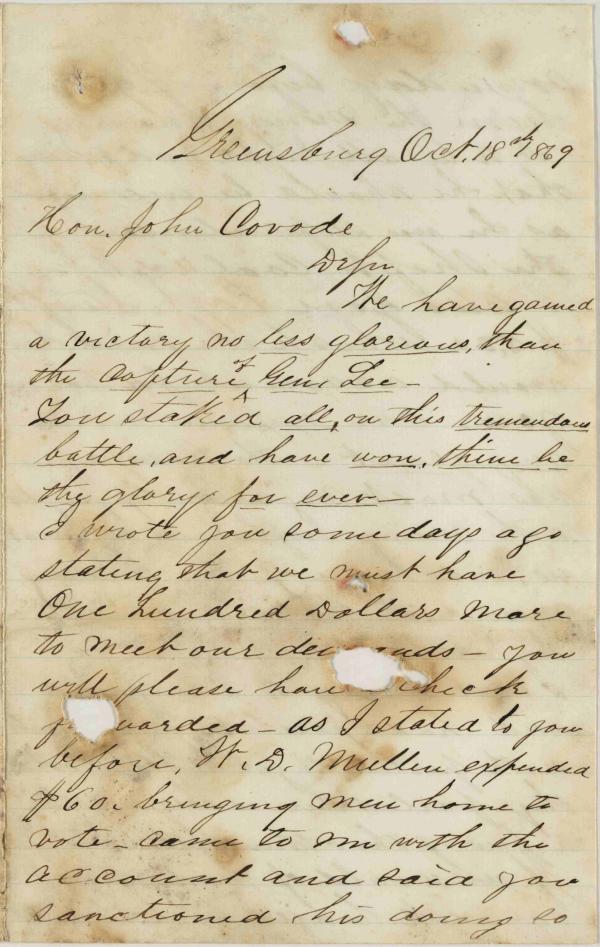 Greensburg Oct. 18th 1869
Hon. John Covode
Dr Sir
We have gained
a victory no less glorious, than
the capture of Genl Lee –
You staked all, on this tremendous
battle, and have won, thine be
the glory for ever –
I wrote you some days ago
stating that we must have
One Hundred Dollars more
to meet our de ands – you
will please have check
f warded – as I stated to you
before, W. D. Mullin expended
$60. bringing men home to
vote – came to me with the
account and said you
sanctioned his doing so